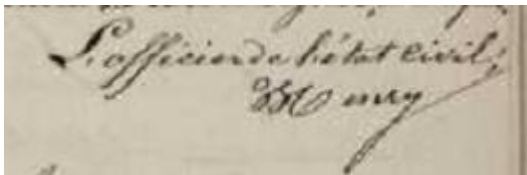 L'officier de l'état civil,
Henry